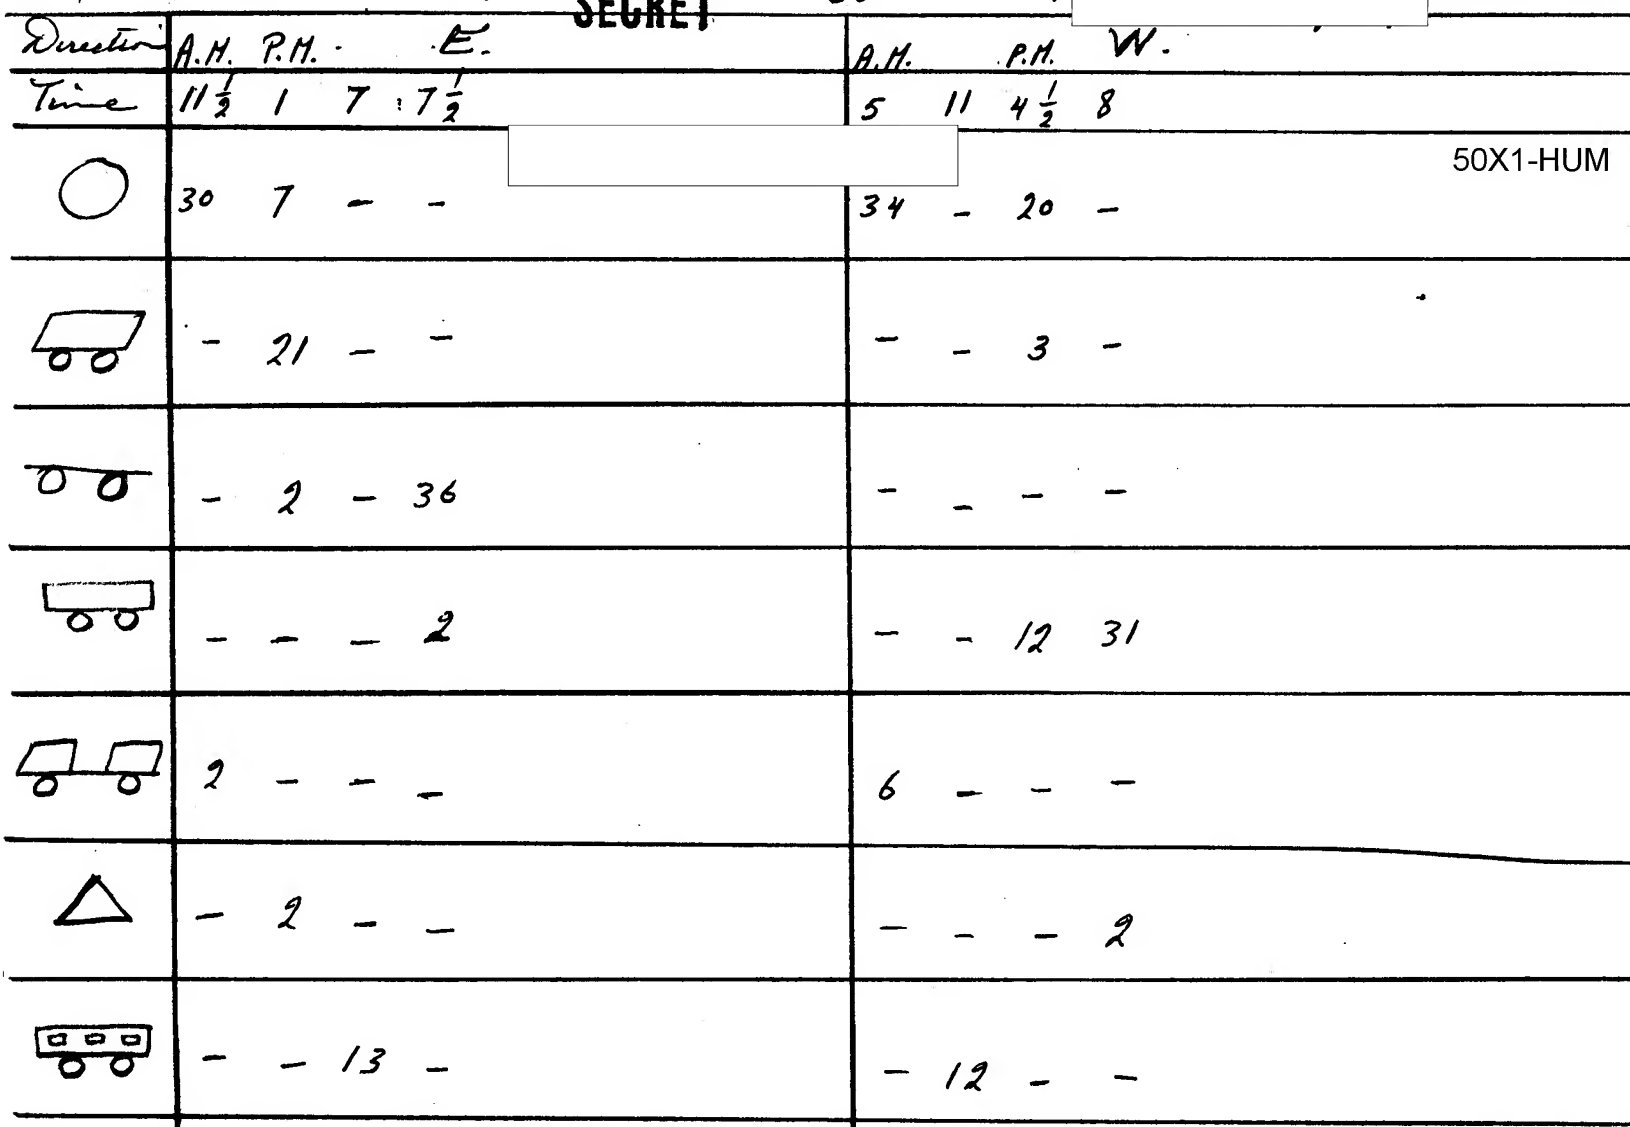 SECRET
Direction A.M. P.M. E. A.M. P.M. W.
Time 11 1/2 1 7 7 1/2 5 11 4 1/2 8
50X1-HUM
30 7 - - 34 - 20 -
- 21 - - - - 3 -
- 2 - 36 - - - -
- - - 2 - - 12 31
2 - - - 6 - - -
- 2 - - - - - 2
- - 13 - - 12 - -